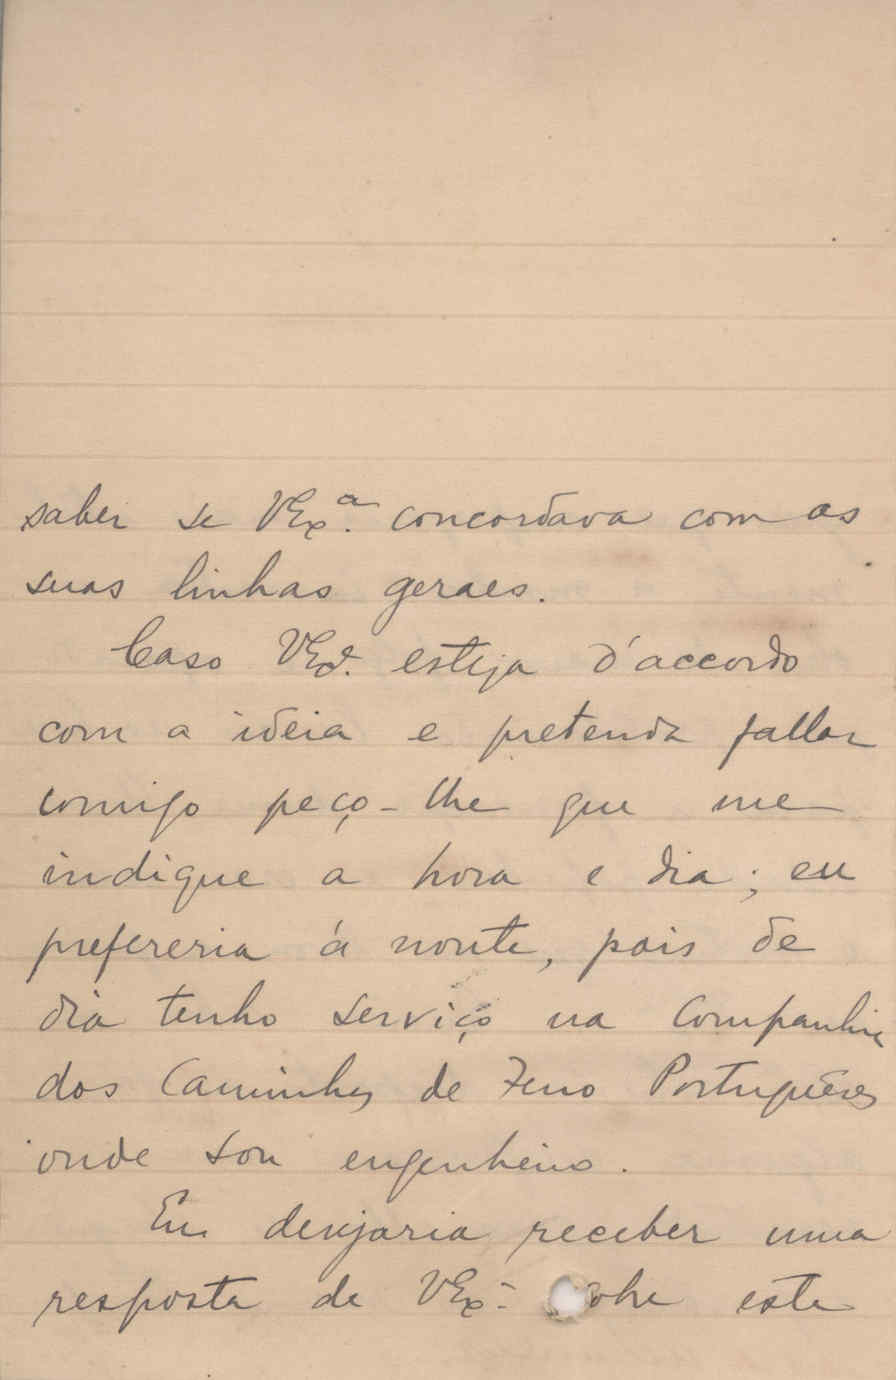 saber se VEx.ª concordava com as
suas linhas geraes.
Caso VEx.ª esteja d'accordo
com a ideia e pretenda fallar
comigo peço-lhe que me
indique a hora e dia; eu
prefereria á noute, pois de
dia tenho serviço na Companhia
dos Caminhos de Ferro Portuguêses
onde sou engenheiro.
Eu desejaria receber uma
resposta de VEx.ª sobre este